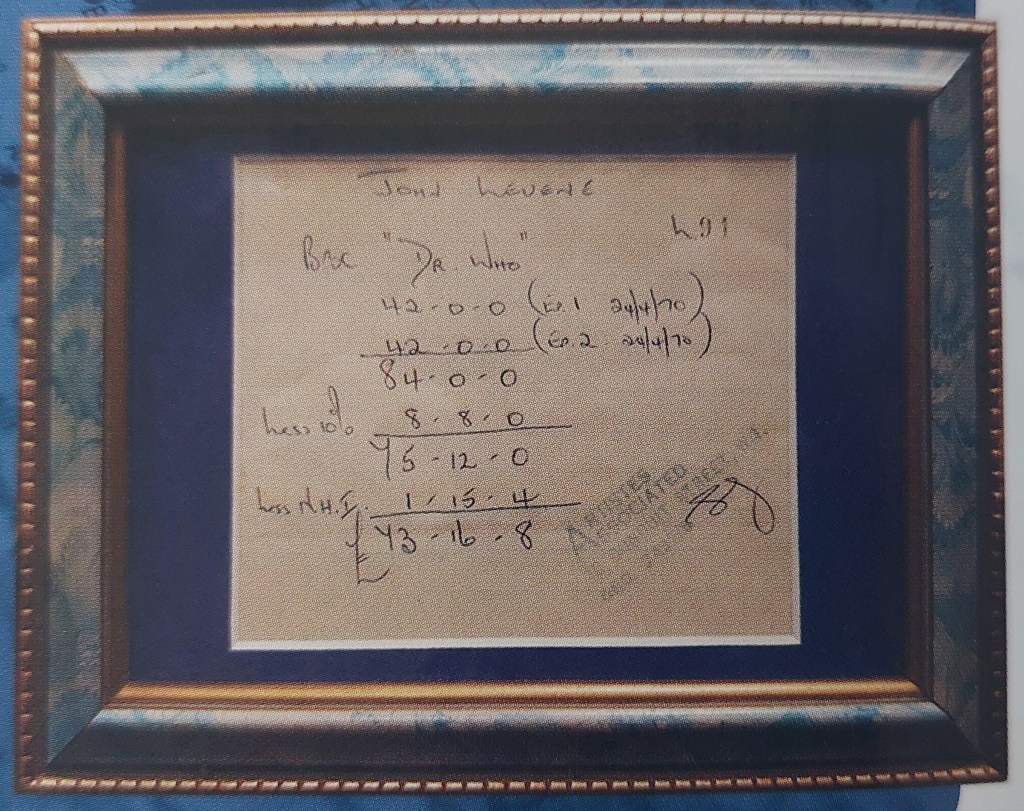 JOHN LEVENE
L91
BBC "DR. WHO"
42-0-0 (EP.1 24/4/70)
42-0-0 (EP.2 24/4/70)
84-0-0
Less 10% 8-8-0
75-12-0
Less N.H.I. 1-15-4
£73-16-8
ARTISTES
ASSOCIATED
STREET,